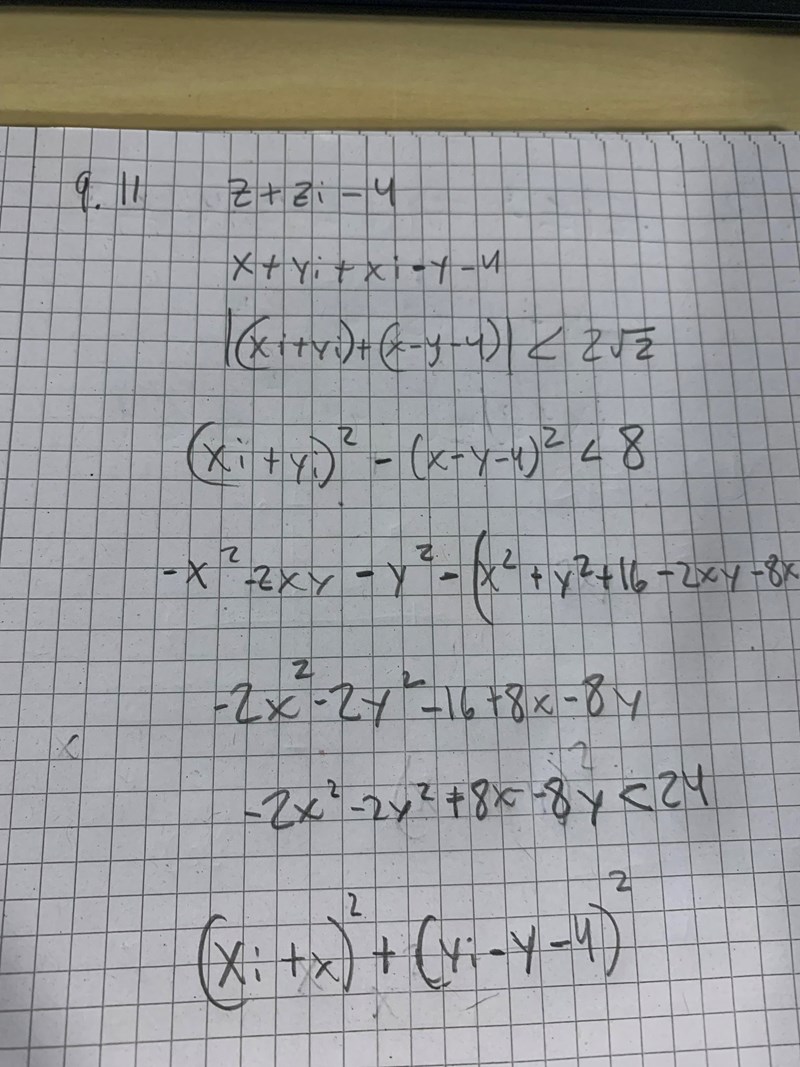 9.11 z+zi-4
x+yi+xi-y-4
|(xi+yi)+(x-y-4)| < 2√2
(xi+yi)² - (x-y-4)² < 8
-x² -2xy - y² - (x² + y² +16 -2xy -8x
-2x² -2y² -16 +8x -8y
-2x² -2y² +8x -8y < 24
(xi+x)² + (yi-y-4)²